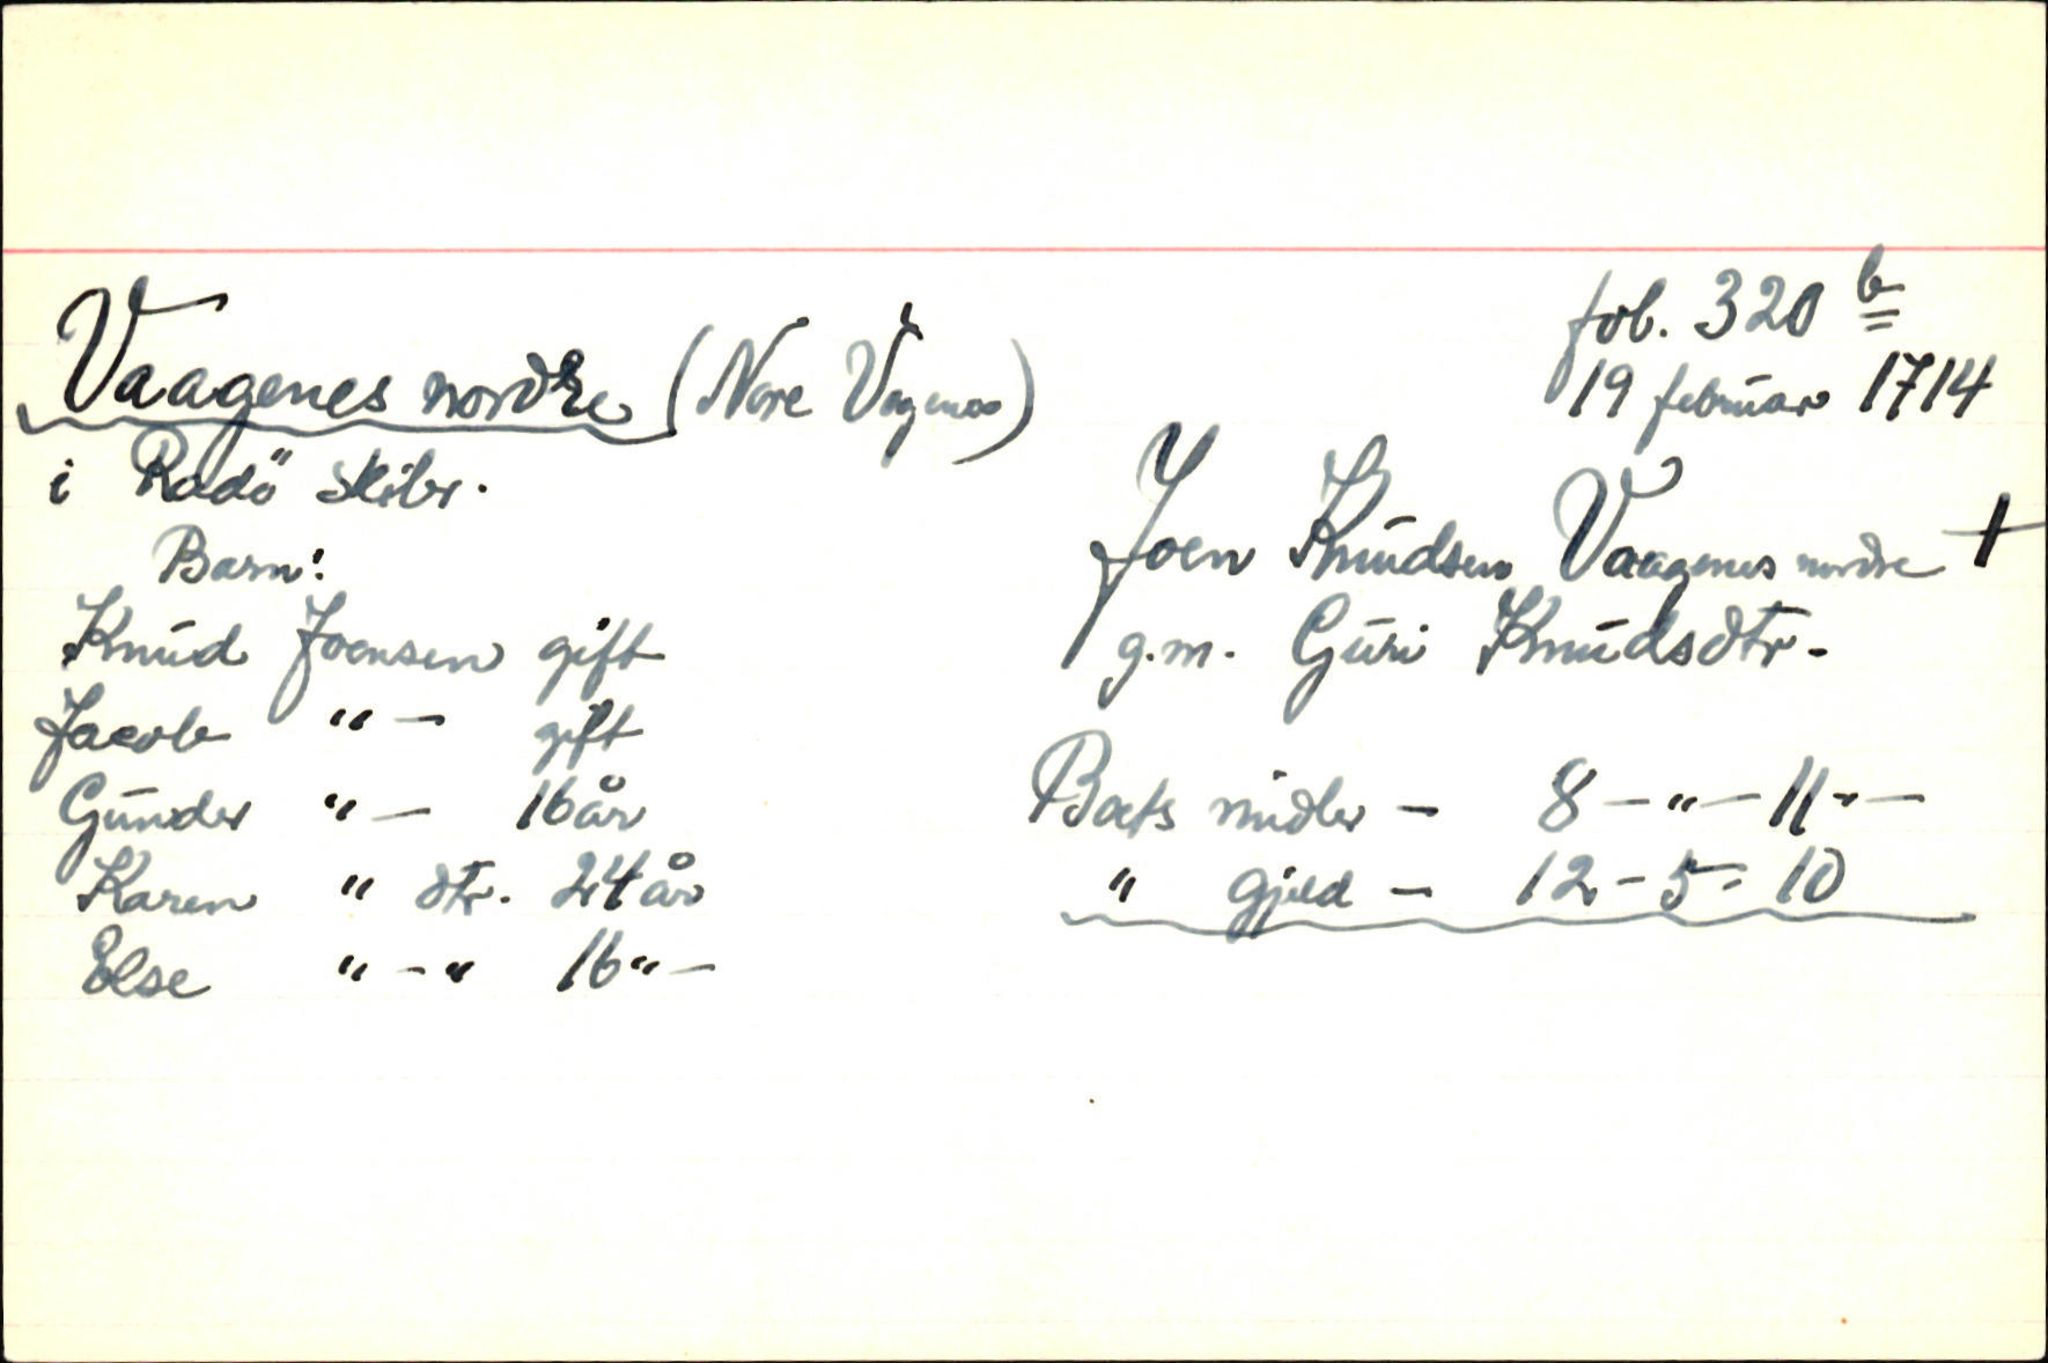 Vaagenes nordre (Nore Vågenes)
i Radö skibr.
Barn:
Knud Joensen gift
Jacob " — gift
Gunder " — 16 år
Karen " dtr. 24 år
Else " - " 16 " —
fol. 320 b
19 februar 1714
Joen Knudsen Vaagenes nordre †
g.m. Guri Knudsdtr.
Boets midler — 8 — " — 11 " —
" gjeld — 12 - 5 - 10